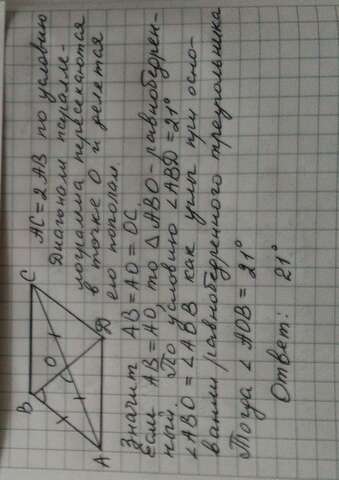 B
C
O
A
D
AC = 2AB по условию
Диагонали паралле-
лограмма пересекаются
в точке O и делятся
ею пополам.
Значит AB = AO = OC.
Если AB = AO, то △ABO - равнобедрен-
ный. По условию ∠ABD = 21°
∠ABO = ∠ABB как углы при осно-
вании равнобедренного треугольника
Тогда ∠AOB = 21°
Ответ: 21°